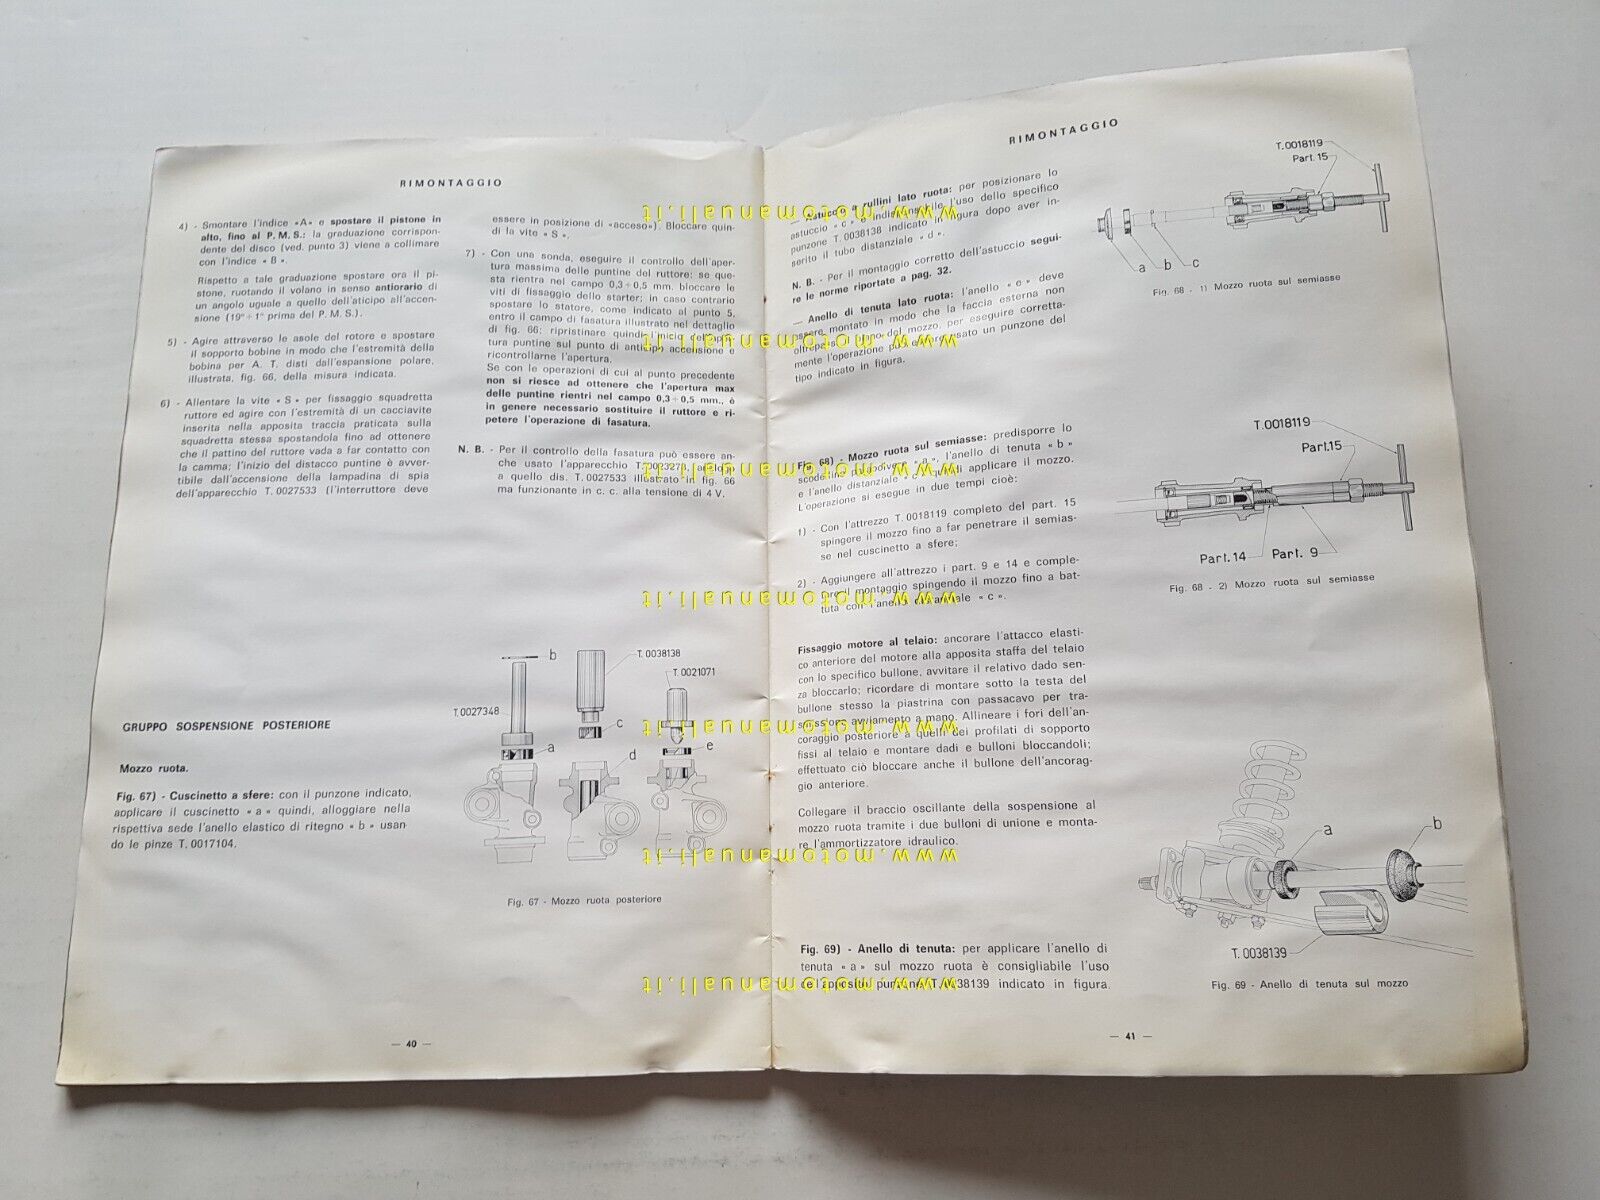 RIMONTAGGIO
4) - Smontare l'indice «A» e spostare il pistone in
alto, fino al P.M.S.: la graduazione corrispon-
dente del disco (ved. punto 3) viene a collimare
con l'indice « B ».
Rispetto a tale graduazione spostare ora il pi-
stone, ruotando il volano in senso antiorario di
un angolo uguale a quello dell'aticipo all'accen-
sione (19° ÷ 1° prima del P.M.S.).
5) - Agire attraverso le asole del rotore e spostare
il sopporto bobine in modo che l'estremità della
bobina per A. T. disti dall'espansione polare,
illustrata, fig. 66, della misura indicata.
6) - Allentare la vite « S » per fissaggio squadretta
ruttore ed agire con l'estremità di un cacciavite
inserita nella apposita traccia praticata sulla
squadretta stessa spostandola fino ad ottenere
che il pattino del ruttore vada a far contatto con
la camma; l'inizio del distacco puntine è avver-
tibile dall'accensione della lampadina di spia
dell'apparecchio T. 0027533 (l'interruttore deve
essere in posizione di «acceso»). Bloccare quin-
di la vite « S ».
7) - Con una sonda, eseguire il controllo dell'aper-
tura massima delle puntine del ruttore: se que-
sta rientra nel campo 0,3÷0,5 mm. bloccare le
viti di fissaggio dello starter; in caso contrario
spostare lo statore, come indicato al punto 5,
entro il campo di fasatura illustrato nel dettaglio
di fig. 66; ripristinare quindi l'inizio dell'aper-
tura puntine sul punto di anticipo accensione e
ricontrollarne l'apertura.
Se con le operazioni di cui al punto precedente
non si riesce ad ottenere che l'apertura max
delle puntine rientri nel campo 0,3÷0,5 mm., è
in genere necessario sostituire il ruttore e ri-
petere l'operazione di fasatura.
N. B. - Per il controllo della fasatura può essere an-
che usato l'apparecchio analogo
a quello dis. T. 0027533 illustrato in fig. 66
ma funzionante in c. c. alla tensione di 4 V.
GRUPPO SOSPENSIONE POSTERIORE
Mozzo ruota.
Fig. 67) - Cuscinetto a sfere: con il punzone indicato,
applicare il cuscinetto « a » quindi, alloggiare nella
rispettiva sede l'anello elastico di ritegno « b » usan
do le pinze T. 0017104.
b
T. 0038138
T. 0021071
T. 0027348
c
a
e
d
Fig. 67 - Mozzo ruota posteriore
— 40 —
RIMONTAGGIO
Astuccio a rullini lato ruota: per posizionare lo
astuccio « c » è indispensabile l'uso dello specifico
punzone T. 0038138 indicato in figura dopo aver in-
serito il tubo distanziale « d ».
N. B. - Per il montaggio corretto dell'astuccio segui-
re le norme riportate a pag. 32.
— Anello di tenuta lato ruota: l'anello « e » deve
essere montato in modo che la faccia esterna non
oltrepassi il piano del mozzo, per eseguire corretta-
mente l'operazione può essere usato un punzone del
tipo indicato in figura.
T. 0018119
Part. 15
a
b
c
Fig. 68 - 1) Mozzo ruota sul semiasse
Fig. 68) - Mozzo ruota sul semiasse: predisporre lo
« a », l'anello di tenuta « b »
e l'anello distanziale « c » quindi applicare il mozzo.
L'operazione si esegue in due tempi cioè:
1) - Con l'attrezzo T. 0018119 completo del part. 15
spingere il mozzo fino a far penetrare il semias-
se nel cuscinetto a sfere;
2) - Aggiungere all'attrezzo i part. 9 e 14 e comple-
tare il montaggio spingendo il mozzo fino a bat-
tuta con l'anello distanziale « c ».
T. 0018119
Part. 15
Part. 14
Part. 9
Fig. 68 - 2) Mozzo ruota sul semiasse
Fissaggio motore al telaio: ancorare l'attacco elasti-
co anteriore del motore alla apposita staffa del telaio
con lo specifico bullone, avvitare il relativo dado sen-
za bloccarlo; ricordare di montare sotto la testa del
bullone stesso la piastrina con passacavo per tra-
smissione avviamento a mano. Allineare i fori dell'an-
coraggio posteriore a quelli dei profilati di sopporto
fissi al telaio e montare dadi e bulloni bloccandoli;
effettuato ciò bloccare anche il bullone dell'ancorag-
gio anteriore.
Collegare il braccio oscillante della sospensione al
mozzo ruota tramite i due bulloni di unione e monta-
re l'ammortizzatore idraulico.
Fig. 69) - Anello di tenuta: per applicare l'anello di
tenuta « a » sul mozzo ruota è consigliabile l'uso
dell'apposito punzone T. 0038139 indicato in figura.
a
b
T. 0038139
Fig. 69 - Anello di tenuta sul mozzo
— 41 —
www.motomanuali.it
www.motomanuali.it
www.motomanuali.it
www.motomanuali.it
www.motomanuali.it
www.motomanuali.it
www.motomanuali.it